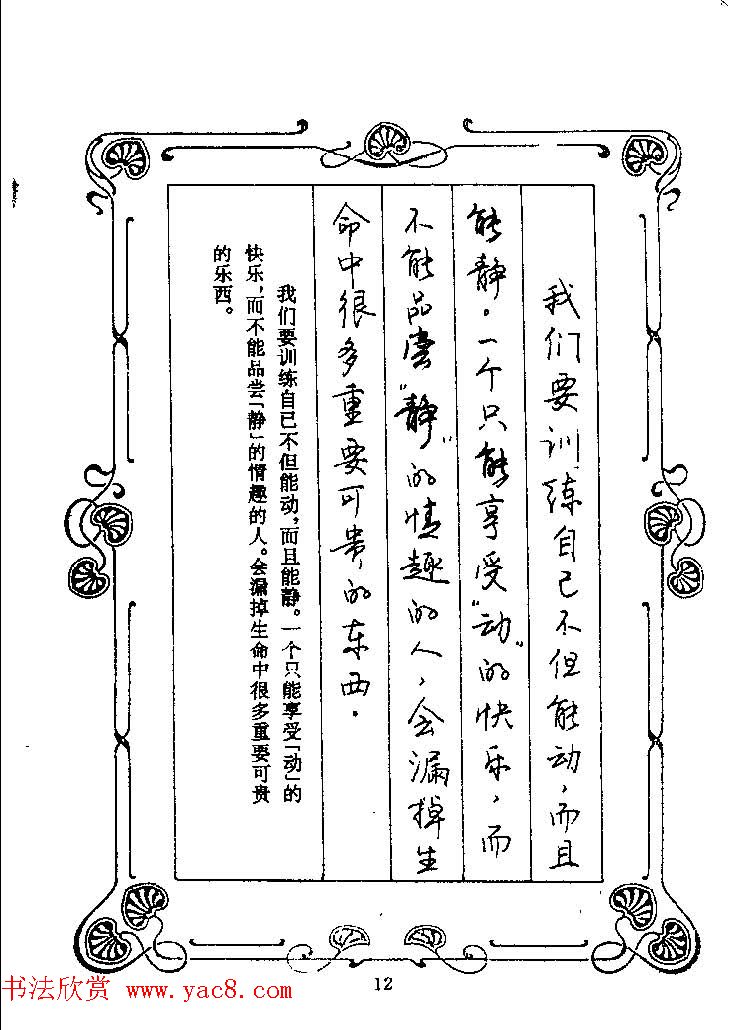 我们要训练自己不但能动，而且
能静。一个只能享受“动”的快乐，而
不能品尝“静”的情趣的人，会漏掉生
命中很多重要可贵的东西。
我们要训练自己不但能动，而且能静。一个只能享受「动」的
快乐，而不能品尝「静」的情趣的人。会漏掉生命中很多重要可贵
的乐西。
12
书法欣赏 www.yac8.com